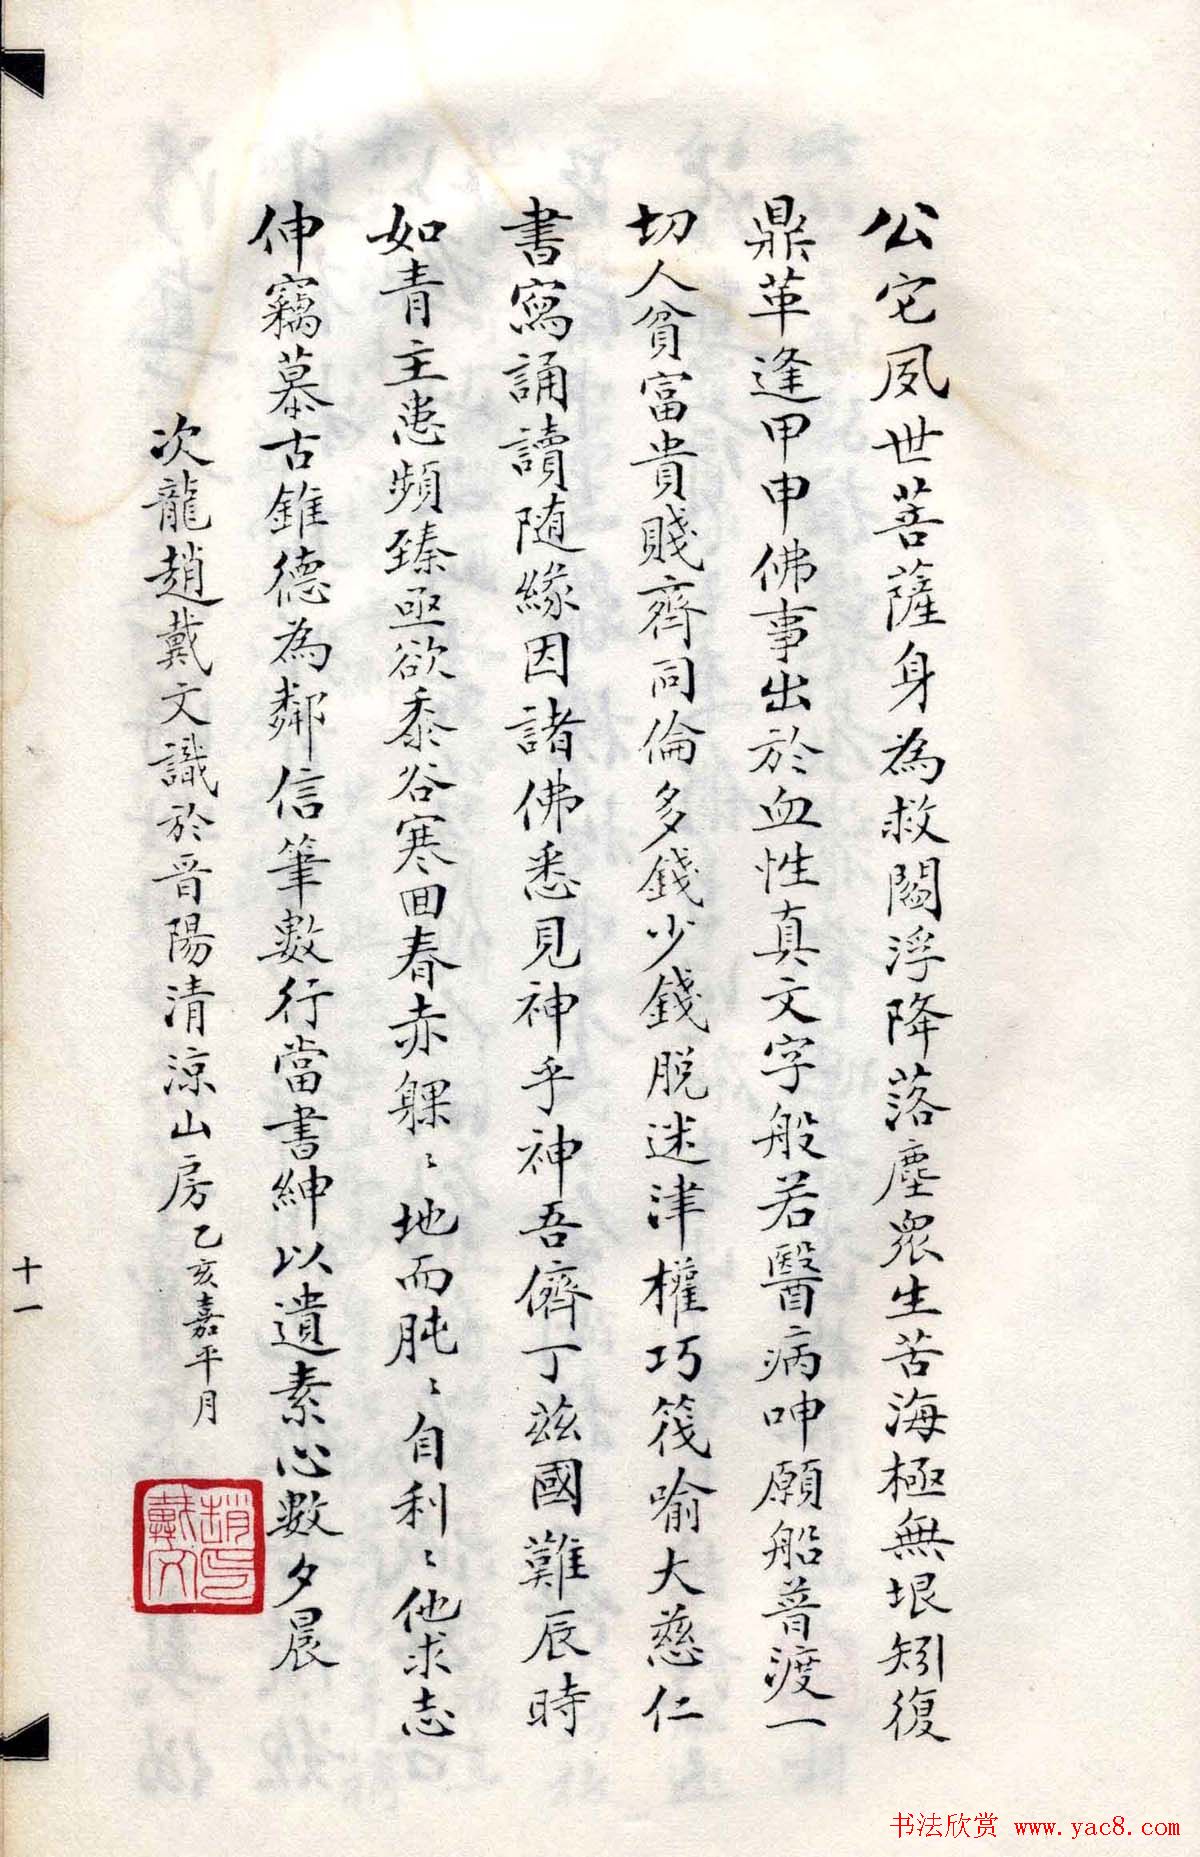 公它夙世菩薩身為救閻浮降落塵眾生苦海極無垠矧復
鼎革逢甲申佛事出於血性真文字般若醫病呻願船普渡一
切人貧富貴賤齊同倫多錢少錢脱迷津權巧筏喻大慈仁
書寫誦讀随緣因諸佛悉見神乎神吾儕丁茲國難辰時
如青主患頻臻亟欲黍谷寒回春赤躶〻地而肫〻自利〻他求志
伸竊慕古錐德為鄰信筆數行當書紳以遺素心數夕晨
次龍趙戴文識於晋陽清涼山房乙亥嘉平月
趙氏
戴文
十一
书法欣赏 www.yac8.com